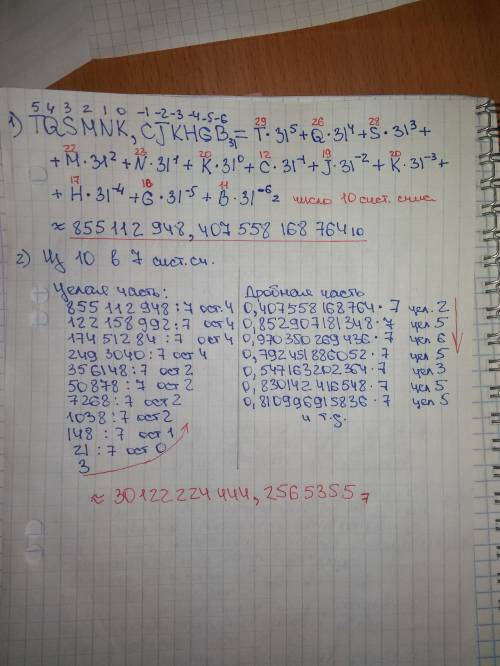 5 4 3 2 1 0 -1 -2 -3 -4 -5 -6
1) TQSMNK, CJKHGB₃₁ = T·31⁵ + Q·31⁴ + S·31³ +
29 26 28
+ M·31² + N·31¹ + K·31⁰ + C·31⁻¹ + J·31⁻² + K·31⁻³ +
22 23 20 12 19 20
+ H·31⁻⁴ + G·31⁻⁵ + B·31⁻⁶ = число 10 сист. счис
17 16 11
≈ 855 112 948, 407 558 168 764₁₀
2) Из 10 в 7 сист. сч.
Целая часть:
855 112 948 : 7 ост. 4
122 158 992 : 7 ост 4
174 512 84 : 7 ост 4
249 3040 : 7 ост 4
356148 : 7 ост 2
50878 : 7 ост 2
7268 : 7 ост 2
1038 : 7 ост 2
148 : 7 ост 1
21 : 7 ост 0
3
Дробная часть
0,407558168764 · 7 цел. 2
0,852907181348 · 7 цел 5
0,970350269436 · 7 цел 6
0,792451886052 · 7 цел 5
0,547163202364 · 7 цел 3
0,830142416548 · 7 цел 5
0,810996915836 · 7 цел 5
и т.д.
≈ 30122224444, 2565355₇